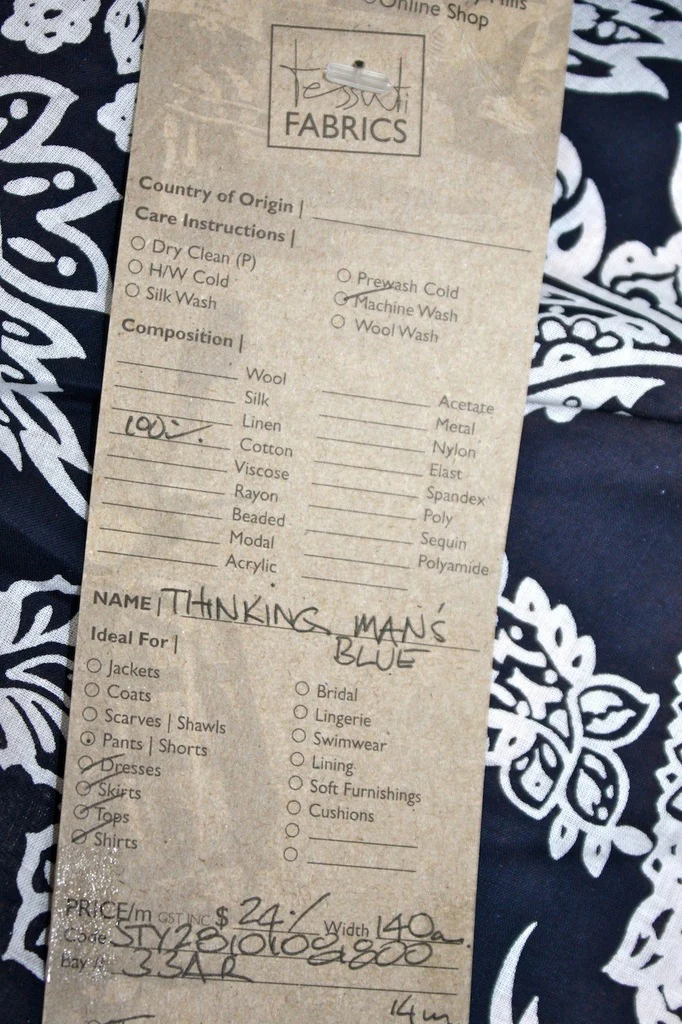 Online Shop
tessuti
FABRICS
Country of Origin |
Care Instructions |
Dry Clean (P)
H/W Cold
Silk Wash
Prewash Cold
Machine Wash
Wool Wash
Composition |
Wool
Silk
Linen
100% Cotton
Viscose
Rayon
Beaded
Modal
Acrylic
Acetate
Metal
Nylon
Elast
Spandex
Poly
Sequin
Polyamide
NAME | THINKING MAN'S
BLUE
Ideal For |
Jackets
Coats
Scarves | Shawls
Pants | Shorts
Dresses
Skirts
Tops
Shirts
Bridal
Lingerie
Swimwear
Lining
Soft Furnishings
Cushions
PRICE/m GST INC $ 24/ Width 140cm
Code
Bay #: 33AR
14m